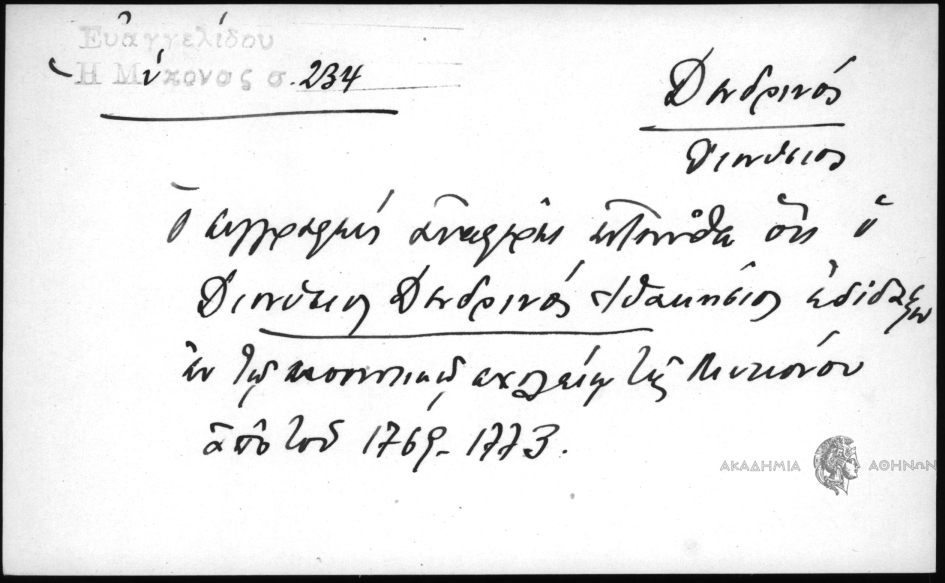 Εὐαγγελίδου
Ἡ Μύκονος σ. 234
Δενδρινός
Διονύσιος
Ὁ συγγραφεύς ἀναφέρει ἐνταῦθα ὅτι ὁ
Διονύσιος Δενδρινός Ἰθακήσιος ἐδίδαξεν
ἐν τῷ κοινοτικῷ σχολείῳ τῆς Μυκόνου
ἀπὸ τοῦ 1769-1773.
ΑΚΑΔΗΜΙΑ ΑΘΗΝΩΝ